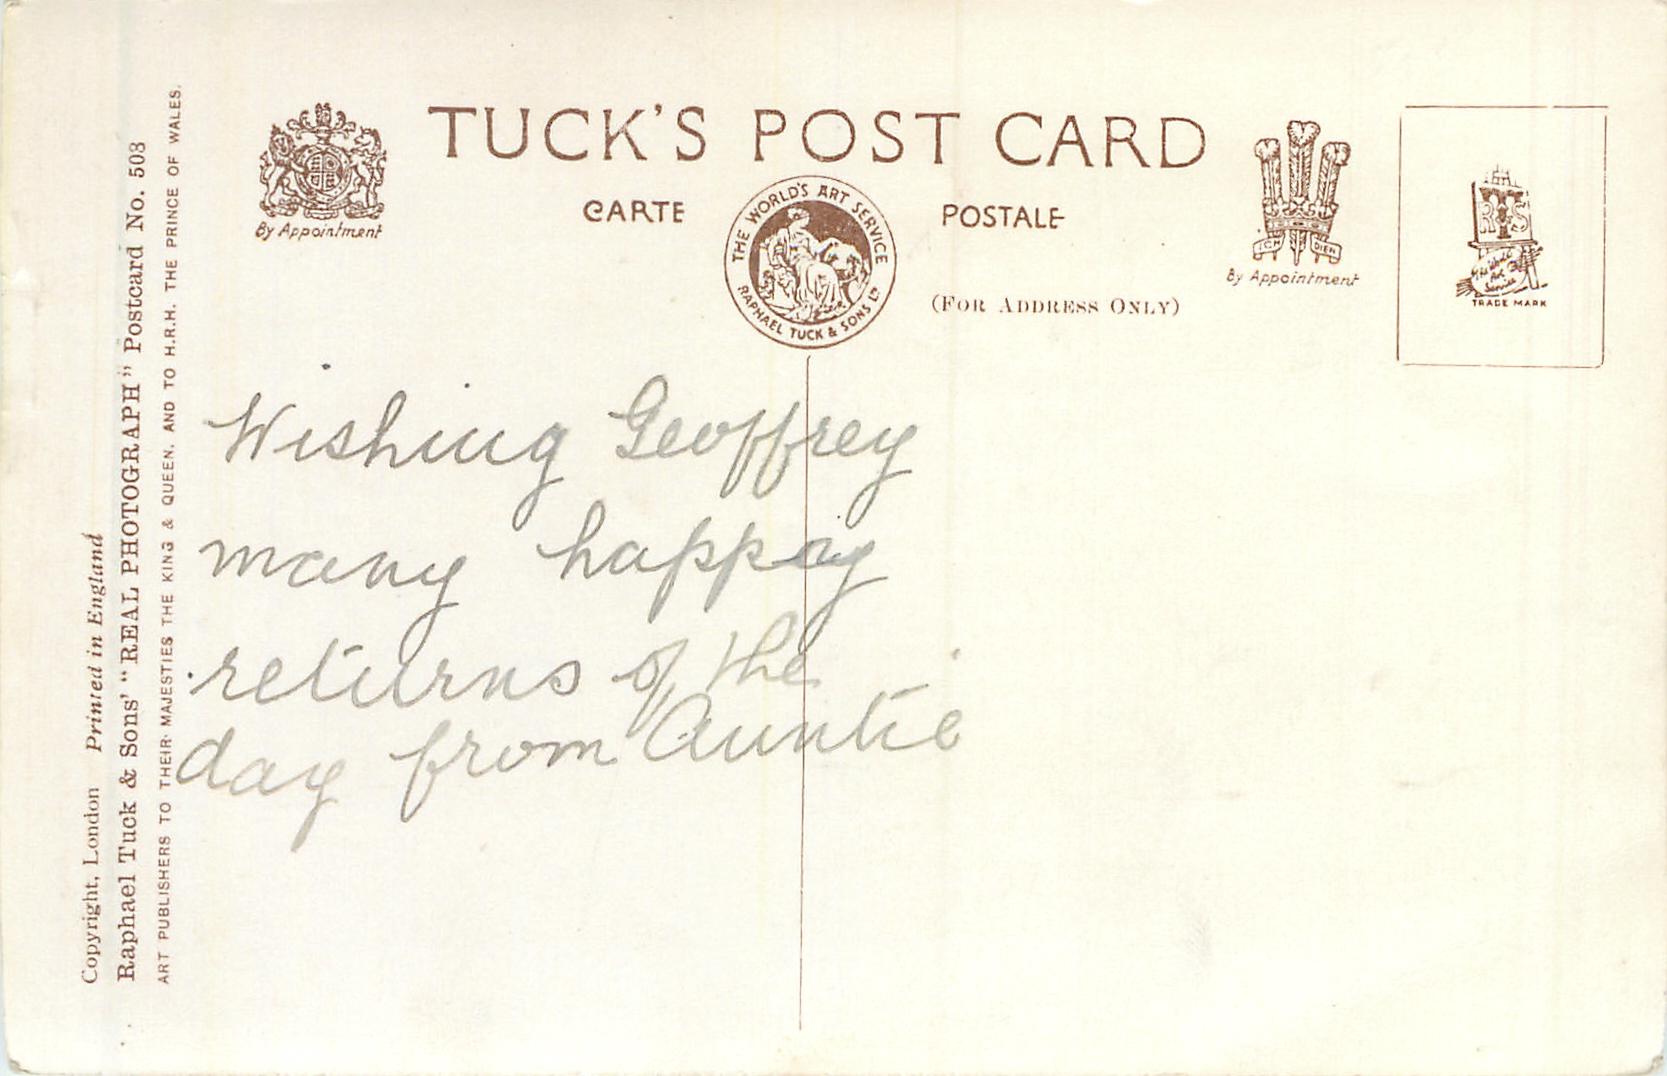 TUCK'S POST CARD
CARTE POSTALE
THE WORLD'S ART SERVICE
RAPHAEL TUCK & SONS LD
By Appointment
ICH DIEN
By Appointment
(FOR ADDRESS ONLY)
RTS
The World's Art Service
TRADE MARK
Wishing Geoffrey
many happy
returns of the
day from Auntie
Copyright, London Printed in England
Raphael Tuck & Sons' "REAL PHOTOGRAPH" Postcard No. 503
ART PUBLISHERS TO THEIR MAJESTIES THE KING & QUEEN, AND TO H.R.H. THE PRINCE OF WALES.